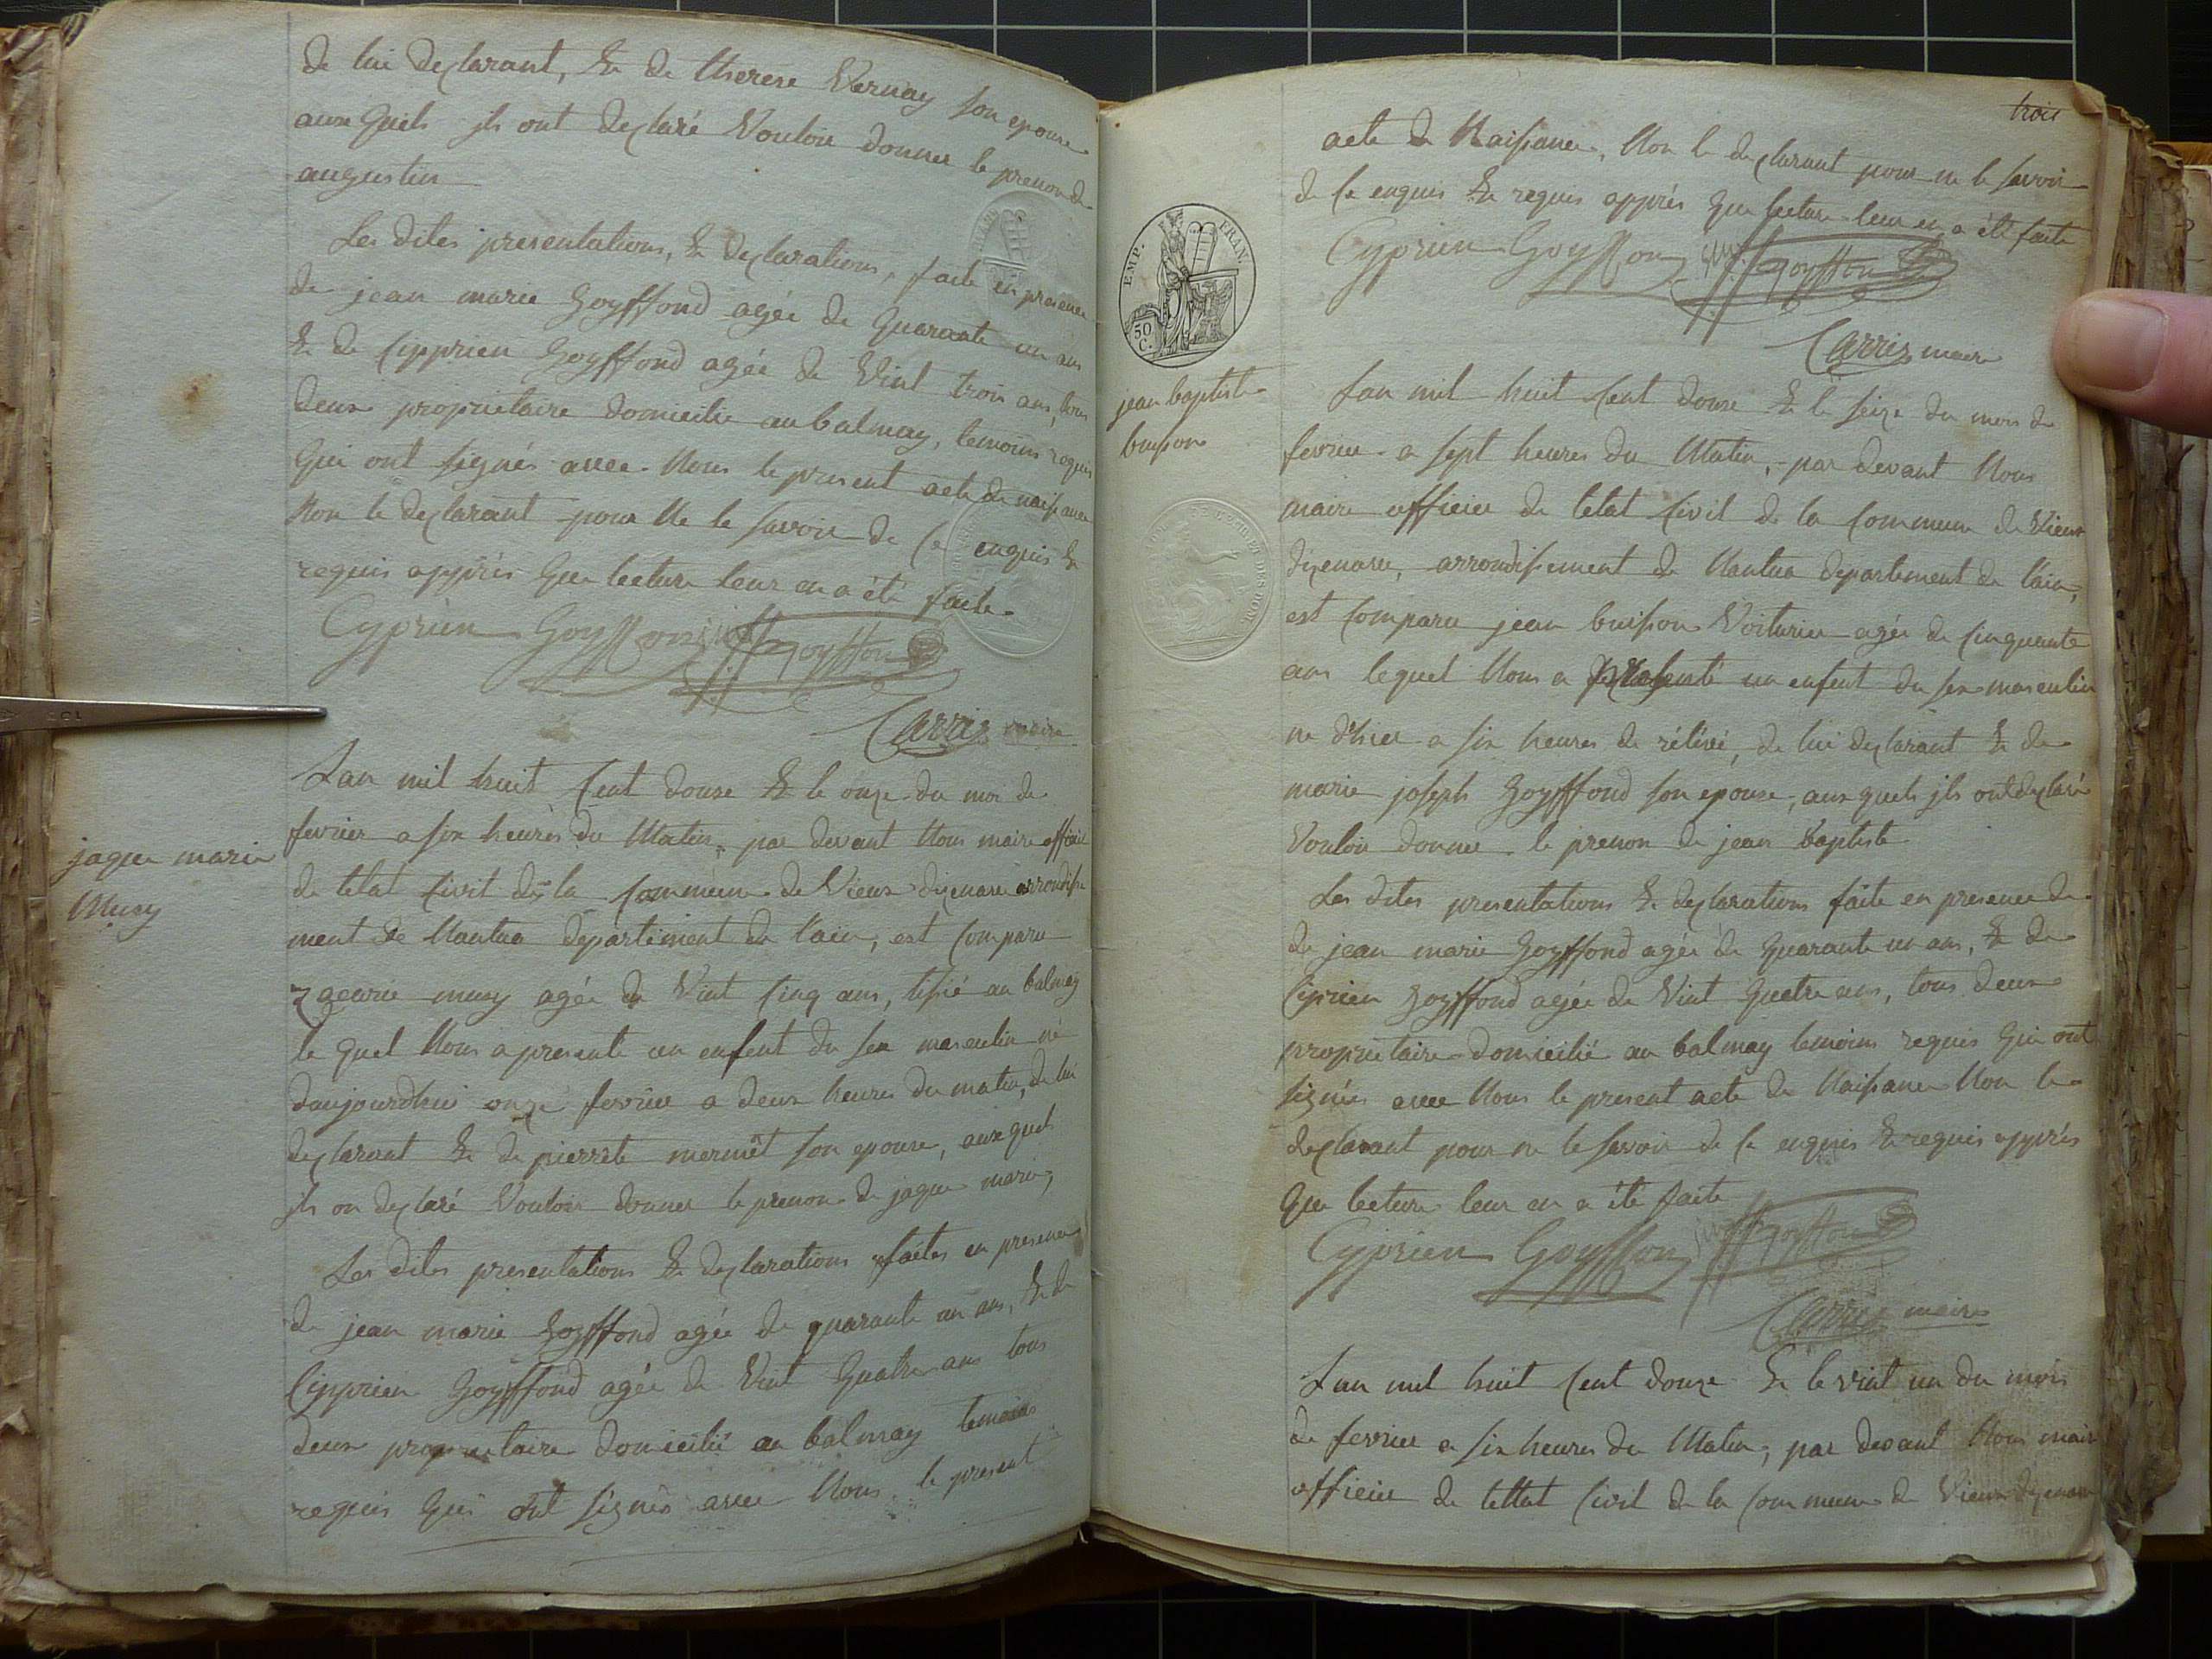 de lui declarant, & de therese Vernay son epouse
aux quels jls ont declaré Vouloir donner le prenon de
augustin
Les dites presentations, & declarations, faite en presence
de jean marie goyffond agée de quarante un ans
& de Cipprien goyffond agée de Vint trois ans, tous
deux propriétaire domicilie au balmay, temoins requis
qui ont signés avec Nous le present acte de naissance
Non le declarant pour Ne le savoir de ce enquis &
requis apprés que lecture leur en a été faite
Cyprien Goyffon Goyffon
Carrier maire
jaque marie
Musy
Lan mil huit Cent douze & le onze du moi de
fevrier a six heures du Matin, par devant Nous maire officier
de letat Civil de la Commune de Vieux dizenave arrondisse
ment de Nantua departement de l'ain, est Comparu
zacarie musy agée de Vint Cinq ans, tissié au balmay
le quel Nous a presenté un enfent du sex masculin né
daujourdhui onze fevrier a deux heures du matin, de lui
declarant & de pierrete mermêt son epouse, aux quels
jls on declaré Vouloir donner le prenon de jaque marie,
Les dites presentations & declarations faites en presence
de jean marie goyffond agée de quarante un ans, & de
Cipprien goyffond agée de Vint quatre ans tous
deux propriétaire domicilié au balmay temoins
requis qui ont signés avec Nous le present
trois
acte de Naissance, Non le declarant pour ne le savoir
de ce enquis & requis apprés que lecture leur en a été faite
Cyprien Goyffon Goyffon
Carrier maire
EMP. FRAN.
50 C.
jean baptiste
buisson
Lan mil huit Cent douze & le seize du mois de
fevrier a sept heures du Matin, par devant Nous
maire officier de letat Civil de la Commune de Vieux
dizenave, arrondissement de Nantua departement de l'ain,
est Comparu jean buisson Voiturier agée de Cinquante
ans lequel Nous a presenté un enfent du sex masculin
ne d'hier a six heures de rélévé, de lui declarant & de
marie joseph goyffond son epouse, aux quels jls ont declaré
Vouloir donner le prenon de jean baptiste
Les dites presentations & declarations faite en presence de
de jean marie goyffond agée de quarante un ans, & de
Ciprien goyffond agée de Vint quatre ans, tous deux
propriétaire domicilié au balmay temoins requis qui ont
signés avec Nous le present acte de Naissance Non le
declarant pour ne le savoir de ce enquis & requis apprés
que lecture leur en a été faite
Cyprien Goyffon Goyffon
Carrier maire
Lan mil huit Cent douze & le vint un du mois
de fevrier a six heures du Matin, par devant Nous maire
officier de lettat Civil de la Commune de Vieux dizenave